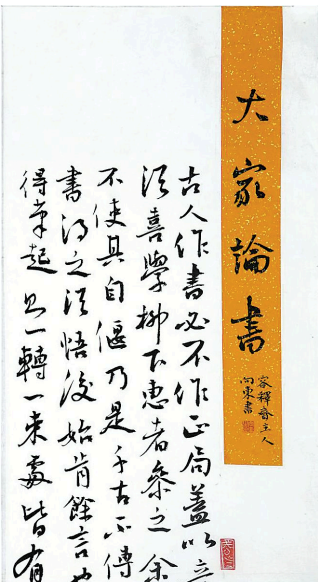 大家論書
容釋齋主人
向東書
古人作書必不作正局蓋以
須喜學柳下惠者參之余
不使其自偃乃是千古不傳
書得之須悟後始肯餘言
得筆起必一轉一束處皆有